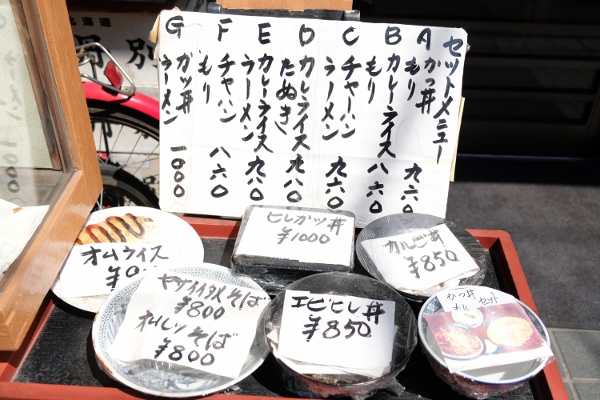 セットメニュー
A かつ丼
もり 九六〇
B カレーライス
もり 八六〇
C チャーハン
ラーメン 九六〇
D カレーライス
たぬき 九八〇
E カレーライス
ラーメン 九八〇
F チャーハン
もり 八六〇
G ガツ丼
ラーメン 1000
北海道
別
オムライス
ヒレガツ丼
¥1000
カルビ丼
¥850
ヤサイイタメそば
¥800
オムレツそば
¥800
エビヒレ丼
¥850
かつ丼
セット